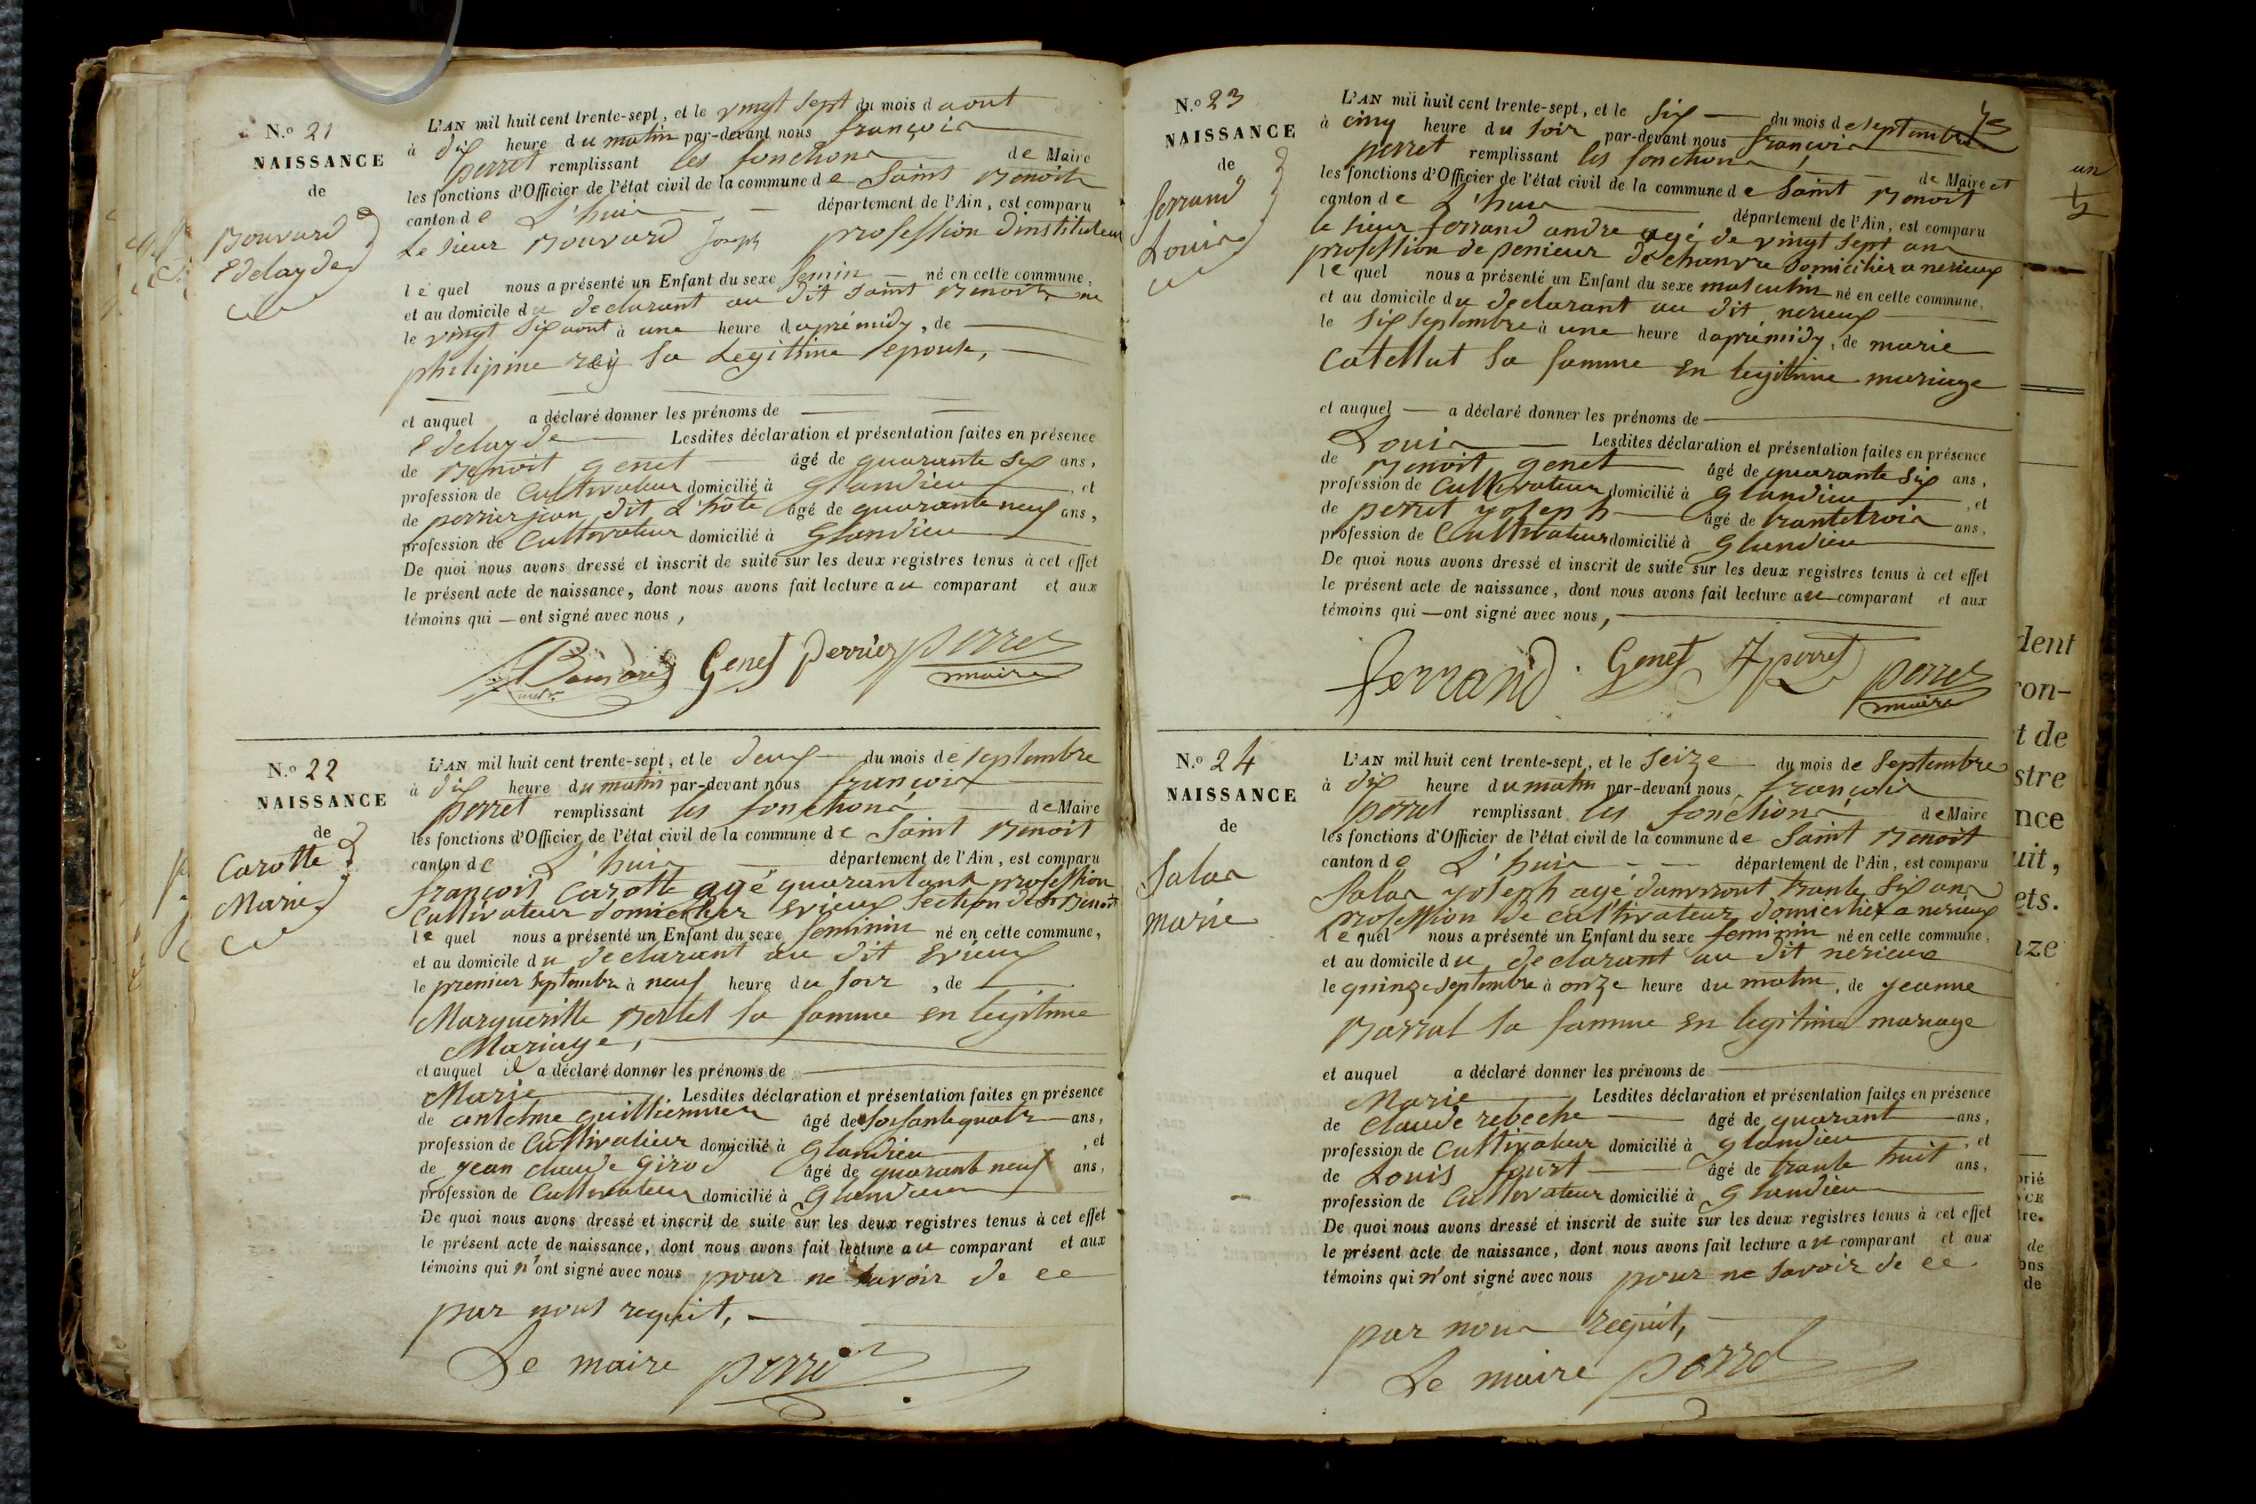 N.o 21
NAISSANCE
de
Bouvard
Edelayde
L'AN mil huit cent trente-sept, et le vingt sept du mois d aout
à dix heure du matin par-devant nous françois
perret remplissant les fonctions de Maire
les fonctions d'Officier de l'état civil de la commune de Saint Benoit
canton de L'huis département de l'Ain, est comparu
Le sieur Bouvard Joseph profession d'instituteur
lequel nous a présenté un Enfant du sexe femin né en cette commune,
et au domicile du declarant au dit saint Benoit ne
le vingt six aout à une heure daprémidy, de
philipine rey sa Legittime epouse,
et auquel a déclaré donner les prénoms de
Edelayde Lesdites déclaration et présentation faites en présence
de Benoit genet âgé de quarante six ans,
profession de Cultivateur domicilié à Glandieu et
de perrier jean dit L'hôte âgé de quarante neuf ans,
profession de Cultivateur domicilié à Glandieu
De quoi nous avons dressé et inscrit de suite sur les deux registres tenus à cet effet
le présent acte de naissance, dont nous avons fait lecture au comparant et aux
témoins qui — ont signé avec nous,
Bouvard Genet perrier perret
maire
N.o 22
NAISSANCE
de
Carotte
Marie
L'AN mil huit cent trente-sept, et le deux du mois de septembre
à dix heure du matin par-devant nous françois
perret remplissant les fonctions de Maire
les fonctions d'Officier de l'état civil de la commune de Saint Benoit
canton de L'huis département de l'Ain, est comparu
françois Carotte agé quarant ans profession
Cultivateur domicilier Evieux section de st Benoit
lequel nous a présenté un Enfant du sexe feminin né en cette commune,
et au domicile du declarant au dit Evieux
le premier septembre à neuf heure du soir, de
Margueritte Bertet sa famme en legitime
Mariage,
et auquel il a déclaré donner les prénoms de
Marie Lesdites déclaration et présentation faites en présence
de antelme guilliermier âgé de soisante quatr ans,
profession de Cultivatieur domicilié à Glandieu, et
de jean claude Girod âgé de quarant neuf ans,
profession de Cultivateur domicilié à Glandieu
De quoi nous avons dressé et inscrit de suite sur les deux registres tenus à cet effet
le présent acte de naissance, dont nous avons fait lecture au comparant et aux
témoins qui n'ont signé avec nous pour ne savoir de ce
par nous requit,
Le maire perret
N.o 23
NAISSANCE
de
ferrand
Louis
L'AN mil huit cent trente-sept, et le six du mois de septembre
à cinq heure du soir par-devant nous françois
perret remplissant les fonctions de Maire et
les fonctions d'Officier de l'état civil de la commune de Saint Benoit
canton de L'huis département de l'Ain, est comparu
le sieur ferrand andre agé de vingt sept ans
profession de penieur de chanvre domicilier a nerieux
lequel nous a présenté un Enfant du sexe masculin né en cette commune,
et au domicile du declarant au dit nerieux
le six septembre à une heure daprémidy, de marie
Catellut sa famme en legittime mariage
et auquel — a déclaré donner les prénoms de
Louis Lesdites déclaration et présentation faites en présence
de Benoit genet âgé de quarante six ans,
profession de Cultivateur domicilié à Glandieu, et
de perret yoseph âgé de trantetrois ans,
profession de Cultivateur domicilié à Glandieu
De quoi nous avons dressé et inscrit de suite sur les deux registres tenus à cet effet
le présent acte de naissance, dont nous avons fait lecture au comparant et aux
témoins qui — ont signé avec nous,
ferrand Genet perret perret
maire
N.o 24
NAISSANCE
de
Salas
Marie
L'AN mil huit cent trente-sept, et le seize du mois de Septembre
à dix heure du matin par-devant nous françois
perret remplissant les fonctions de Maire
les fonctions d'Officier de l'état civil de la commune de Saint Benoit
canton de L'huis département de l'Ain, est comparu
Salas yoseph agé danviront trante six ans
profession de cultivateur domicilier a nerieux
lequel nous a présenté un Enfant du sexe feminin né en cette commune,
et au domicile du declarant au dit nerieux
le quinze septembre à onze heure du matin, de yeanne
Barral sa famme en legitime mariage
et auquel a déclaré donner les prénoms de
Marie Lesdites déclaration et présentation faites en présence
de claude rebeche âgé de quarant ans,
profession de Cultivateur domicilié à Glandieu, et
de Louis âgé de trante huit ans,
profession de Cultivateur domicilié à Glandieu
De quoi nous avons dressé et inscrit de suite sur les deux registres tenus à cet effet
le présent acte de naissance, dont nous avons fait lecture au comparant et aux
témoins qui n'ont signé avec nous pour ne savoir de ce
par nous requit,
Le maire perret